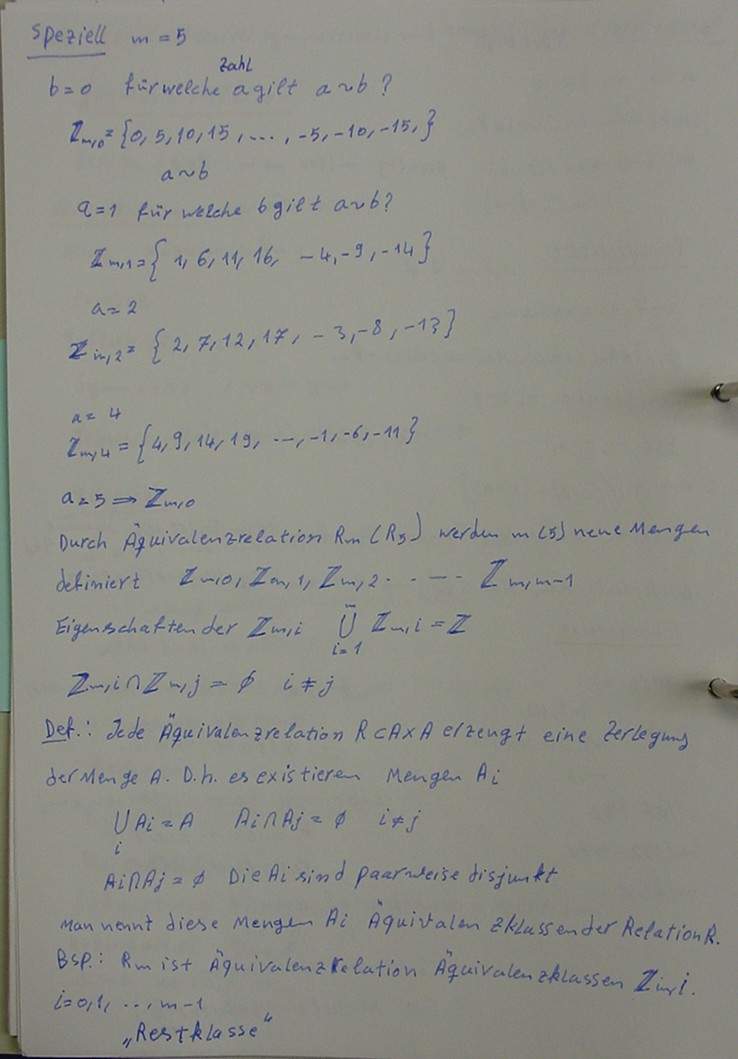 Speziell m = 5
Zahl
b=0 für welche a gilt a~b?
ℤm,0 = {0, 5, 10, 15, ..., -5, -10, -15, }
a~b
a=1 für welche b gilt a~b?
ℤm,1 = { 1, 6, 11, 16, -4, -9, -14 }
a=2
ℤm,2 = { 2, 7, 12, 17, -3, -8, -13 }
a= 4
ℤm,4 = {4, 9, 14, 19, ..., -1, -6, -11 }
a=5 ⇒ ℤm,0
Durch Äquivalenzrelation Rm (R5) werden m (5) neue Mengen
definiert ℤm,0, ℤm,1, ℤm,2 ..... ℤm,m-1
Eigenschaften der ℤm,i ⋃ i=1 ℤm,i = ℤ
ℤm,i ∩ ℤm,j = ∅ i ≠ j
Def.: Jede Äquivalenzrelation R⊂A×A erzeugt eine Zerlegung
der Menge A. D.h. es existieren Mengen Ai
⋃ i Ai = A Ai∩Aj = ∅ i≠j
Ai∩Aj = ∅ Die Ai sind paarweise disjunkt
man nennt diese Mengen Ai Äquivalenzklassen der Relation R.
Bsp.: Rm ist Äquivalenzrelation Äquivalenzklassen ℤm,i.
i=0,1, ..., m-1
„Restklasse“